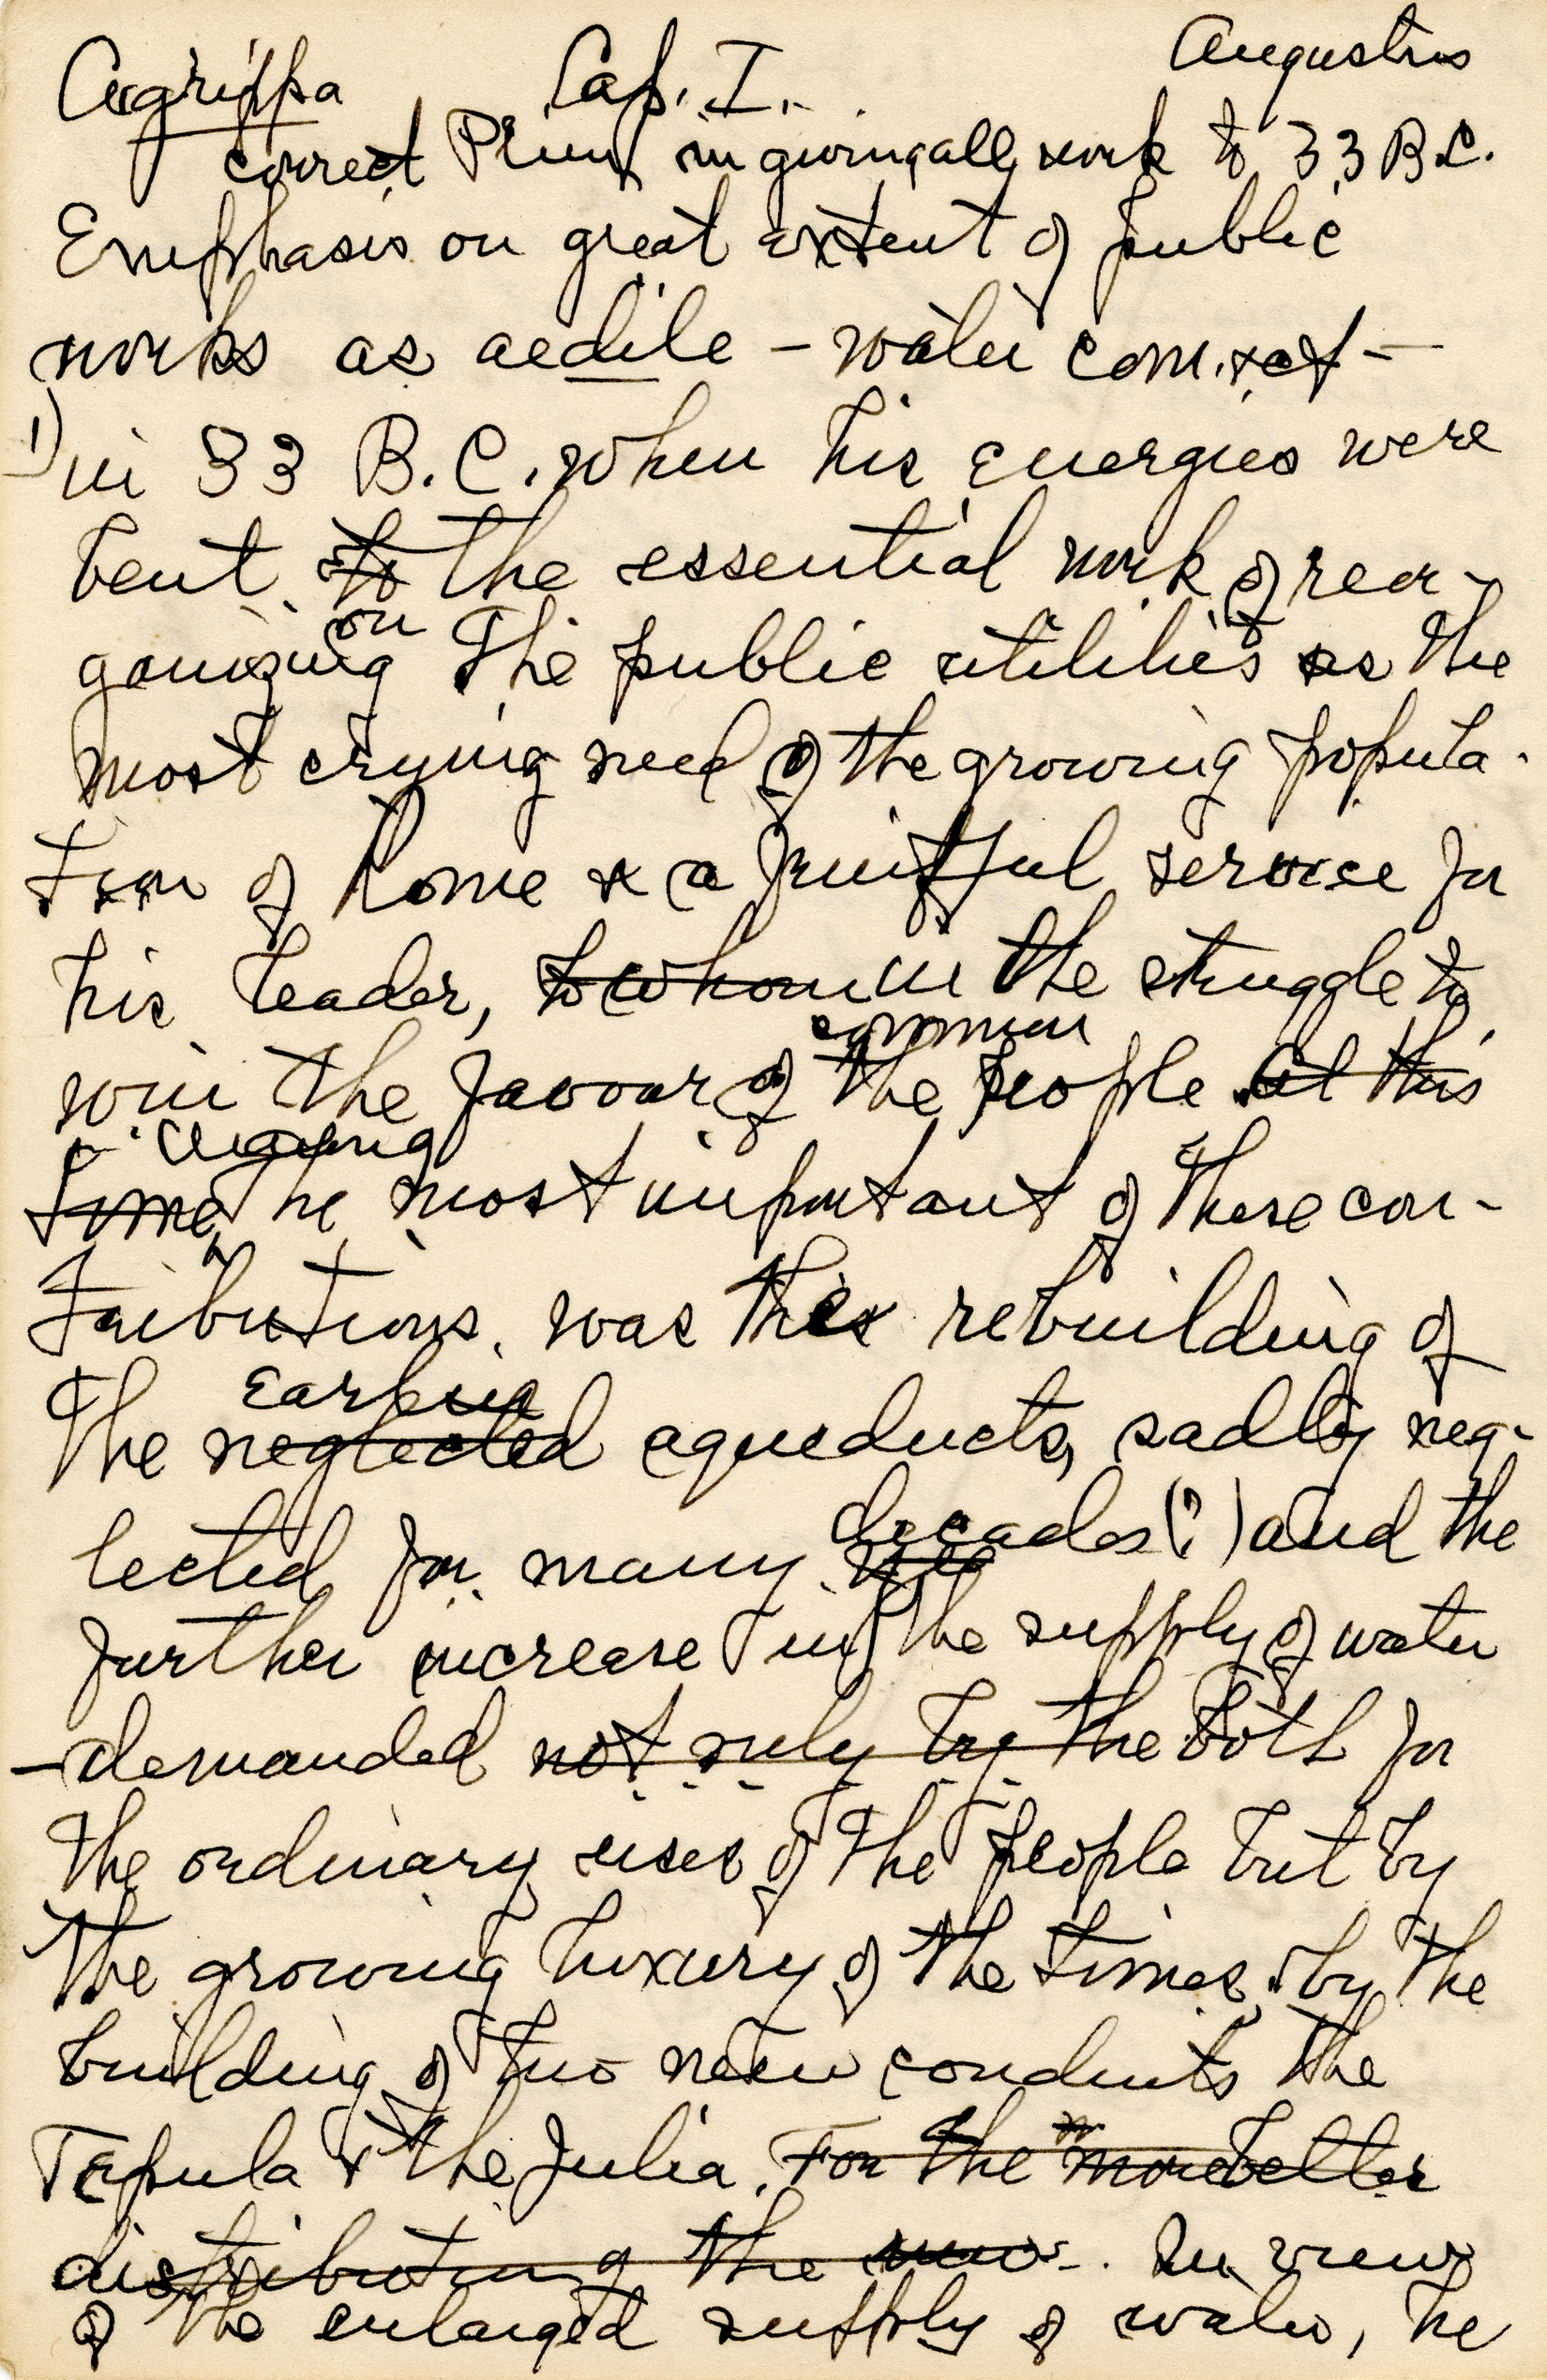 Agrippa Cap. I. Augustus
correct Pliny in giving all work to 33 B.C.
Emphasis on great extent of public
works as aedile – water com.
1) in 33 B.C. when his energies were
bent to the essential work of reor-
on
ganizing the public utilities as the
most crying need of the growing popula-
tion of Rome & a fruitful service for
his leader, to whom in the struggle to
common
win the favour of the people. At this
Among
time, the most important of these con-
tributions was the rebuilding of
earlier
the neglected aqueducts, sadly neg-
decades (?) and the
lected for many
further increase in the supply of water
demanded not only by the both for
the ordinary uses of the people but by
the growing luxury of the times, by the
building of two new conduits the
Tepula & the Julia. For the more better
distribution of the . In view
of the enlarged supply of water, he